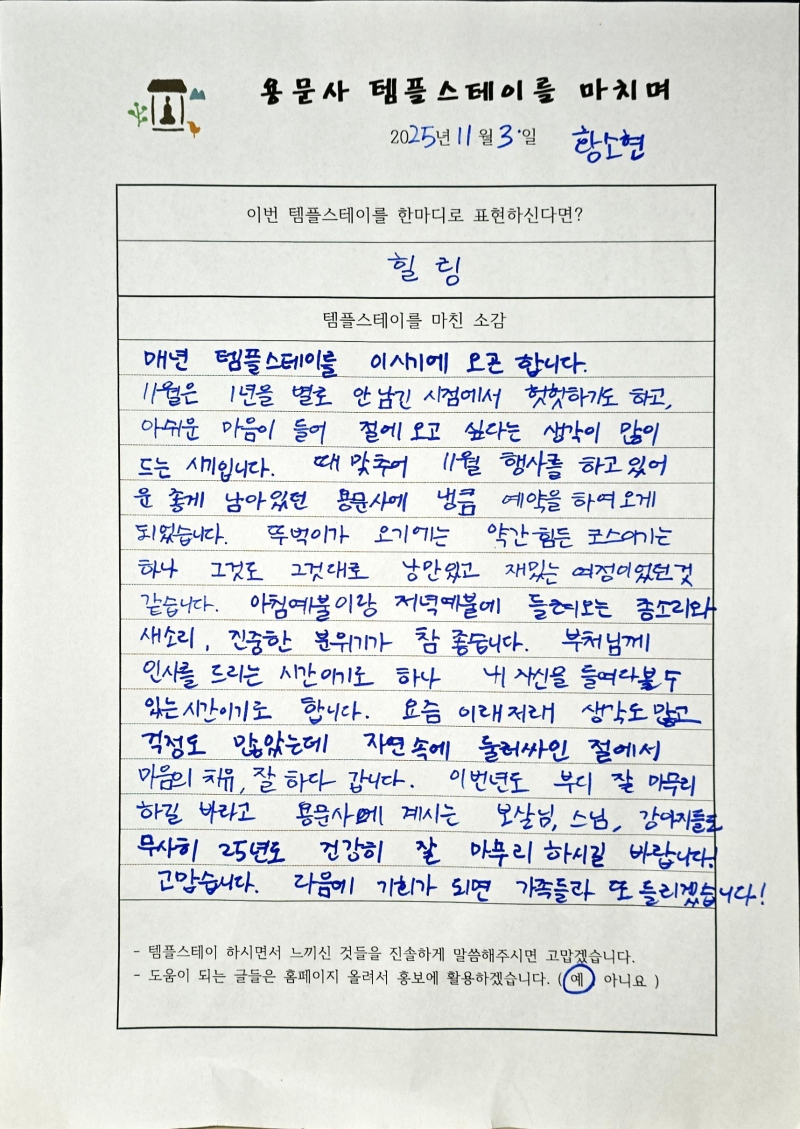 용문사 템플스테이를 마치며
2025년 11월 3일 황소현
이번 템플스테이를 한마디로 표현하신다면?
힐링
템플스테이를 마친 소감
매년 템플스테이를 이시기에 오곤 합니다.
11월은 1년을 별로 안남긴 시점에서 헛헛하기도 하고,
아쉬운 마음이 들어 절에 오고 싶다는 생각이 많이
드는 시기입니다. 때 맞추어 11월 행사를 하고있어
운 좋게 남아있던 용문사에 냉큼 예약을 하여 오게
되었습니다. 뚜벅이가 오기에는 약간 힘든 코스이기는
하나 그것도 그것대로 낭만있고 재밌는 여정이었던것
같습니다. 아침예불이랑 저녁예불에 들려오는 종소리와
새소리, 진중한 분위기가 참 좋습니다. 부처님께
인사를 드리는 시간이기도 하나 내 자신을 들여다볼 수
있는 시간이기도 합니다. 요즘 이래저래 생각도 많고
걱정도 많았는데 자연속에 둘러싸인 절에서
마음의 치유, 잘 하다 갑니다. 이번년도 부디 잘 마무리
하길 바라고 용문사에 계시는 보살님, 스님, 강아지들도
무사히 25년도 건강히 잘 마무리 하시길 바랍니다!
고맙습니다. 다음에 기회가 되면 가족들과 또 들리겠습니다!
- 템플스테이 하시면서 느끼신 것들을 진솔하게 말씀해주시면 고맙겠습니다.
- 도움이 되는 글들은 홈페이지 올려서 홍보에 활용하겠습니다. ( 예 아니요 )